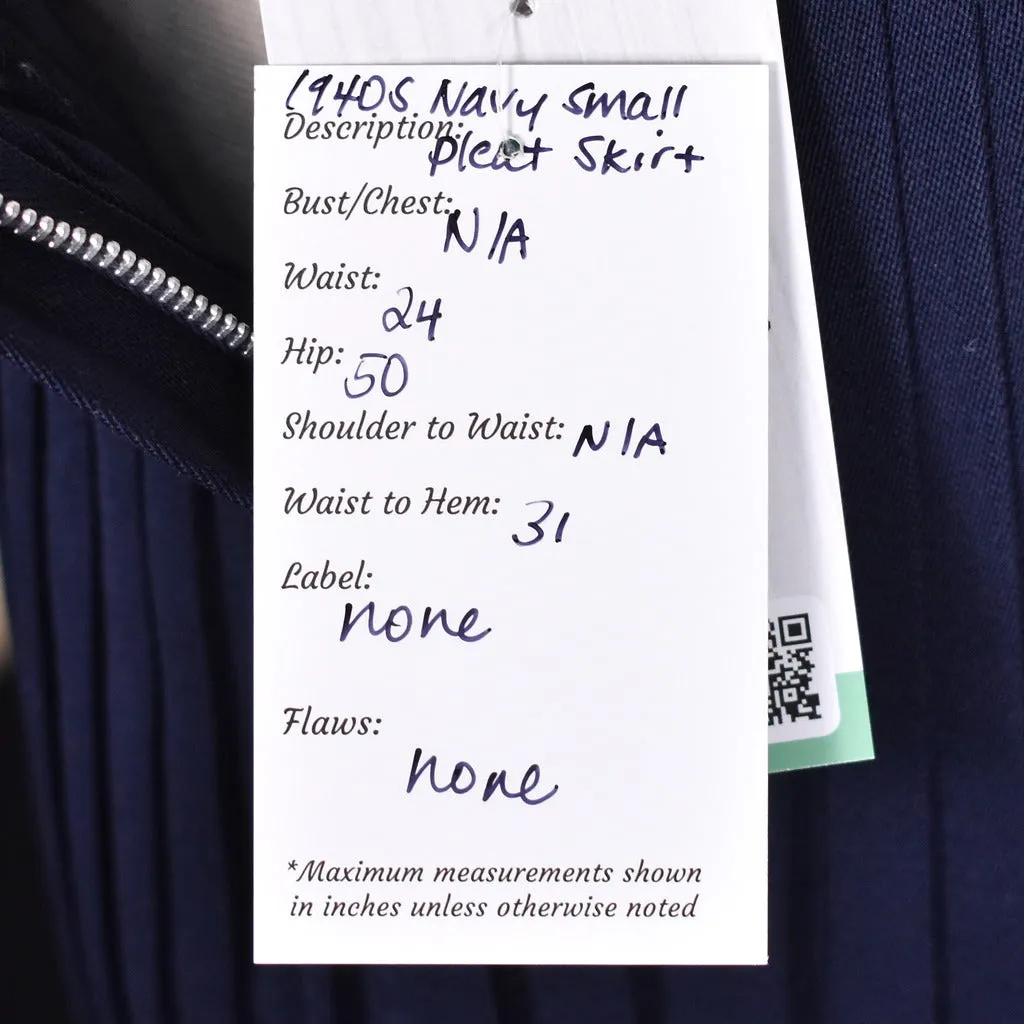 1940s Navy Small
Description:
pleat Skirt
Bust/Chest:
N/A
Waist:
24
Hip: 50
Shoulder to Waist: N/A
Waist to Hem: 31
Label:
none
Flaws:
none
*Maximum measurements shown
in inches unless otherwise noted